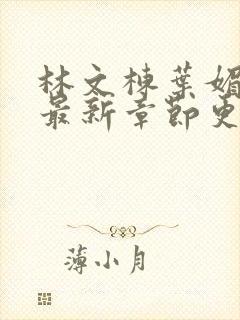 林文棟葉媚
最新章節更
薄小月